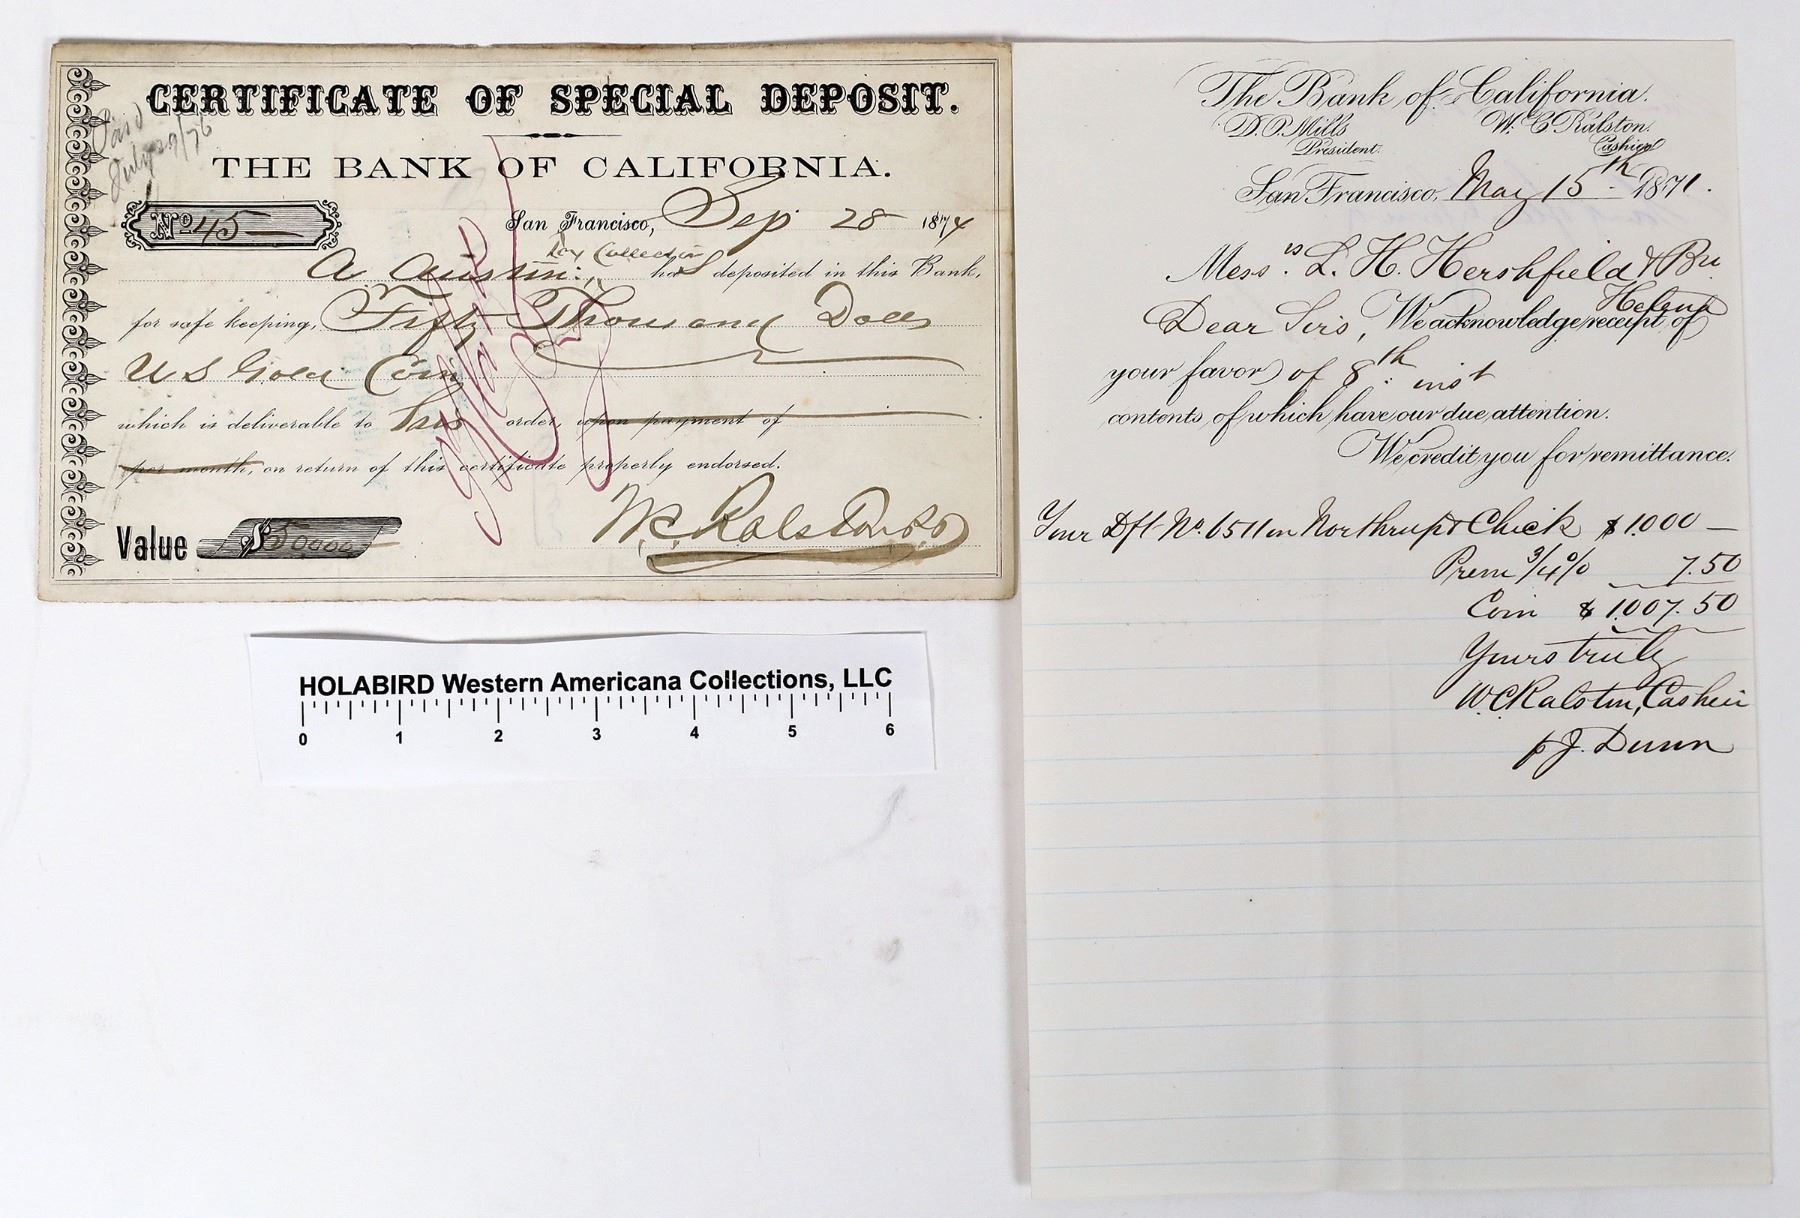 CERTIFICATE OF SPECIAL DEPOSIT.
Paid
July 29/76
THE BANK OF CALIFORNIA.
No 45
San Francisco, Sep 28 1874
Tax Collector
A. Austin has deposited in this Bank,
for safe keeping, Fifty Thousand Dolls
US Gold Coin
which is deliverable to his order, upon payment of
per month, on return of this certificate properly endorsed.
Value $50000
W.C. Ralston
HOLABIRD Western Americana Collections, LLC
0 1 2 3 4 5 6
The Bank of California.
D. O. Mills W. C. Ralston.
President. Cashier
San Francisco, May 15th 1871.
Messrs. L. H. Hershfield & Bro
Helena
Dear Sirs, We acknowledge receipt of
your favor of 8th inst
contents of which have our due attention.
We credit you for remittance.
Your Dft No. 6511 on Northrup & Chick $1000 —
Prem 3/4% 7.50
Coin $1007.50
Yours truly
W.C. Ralston, Cashier
p J. Dunn